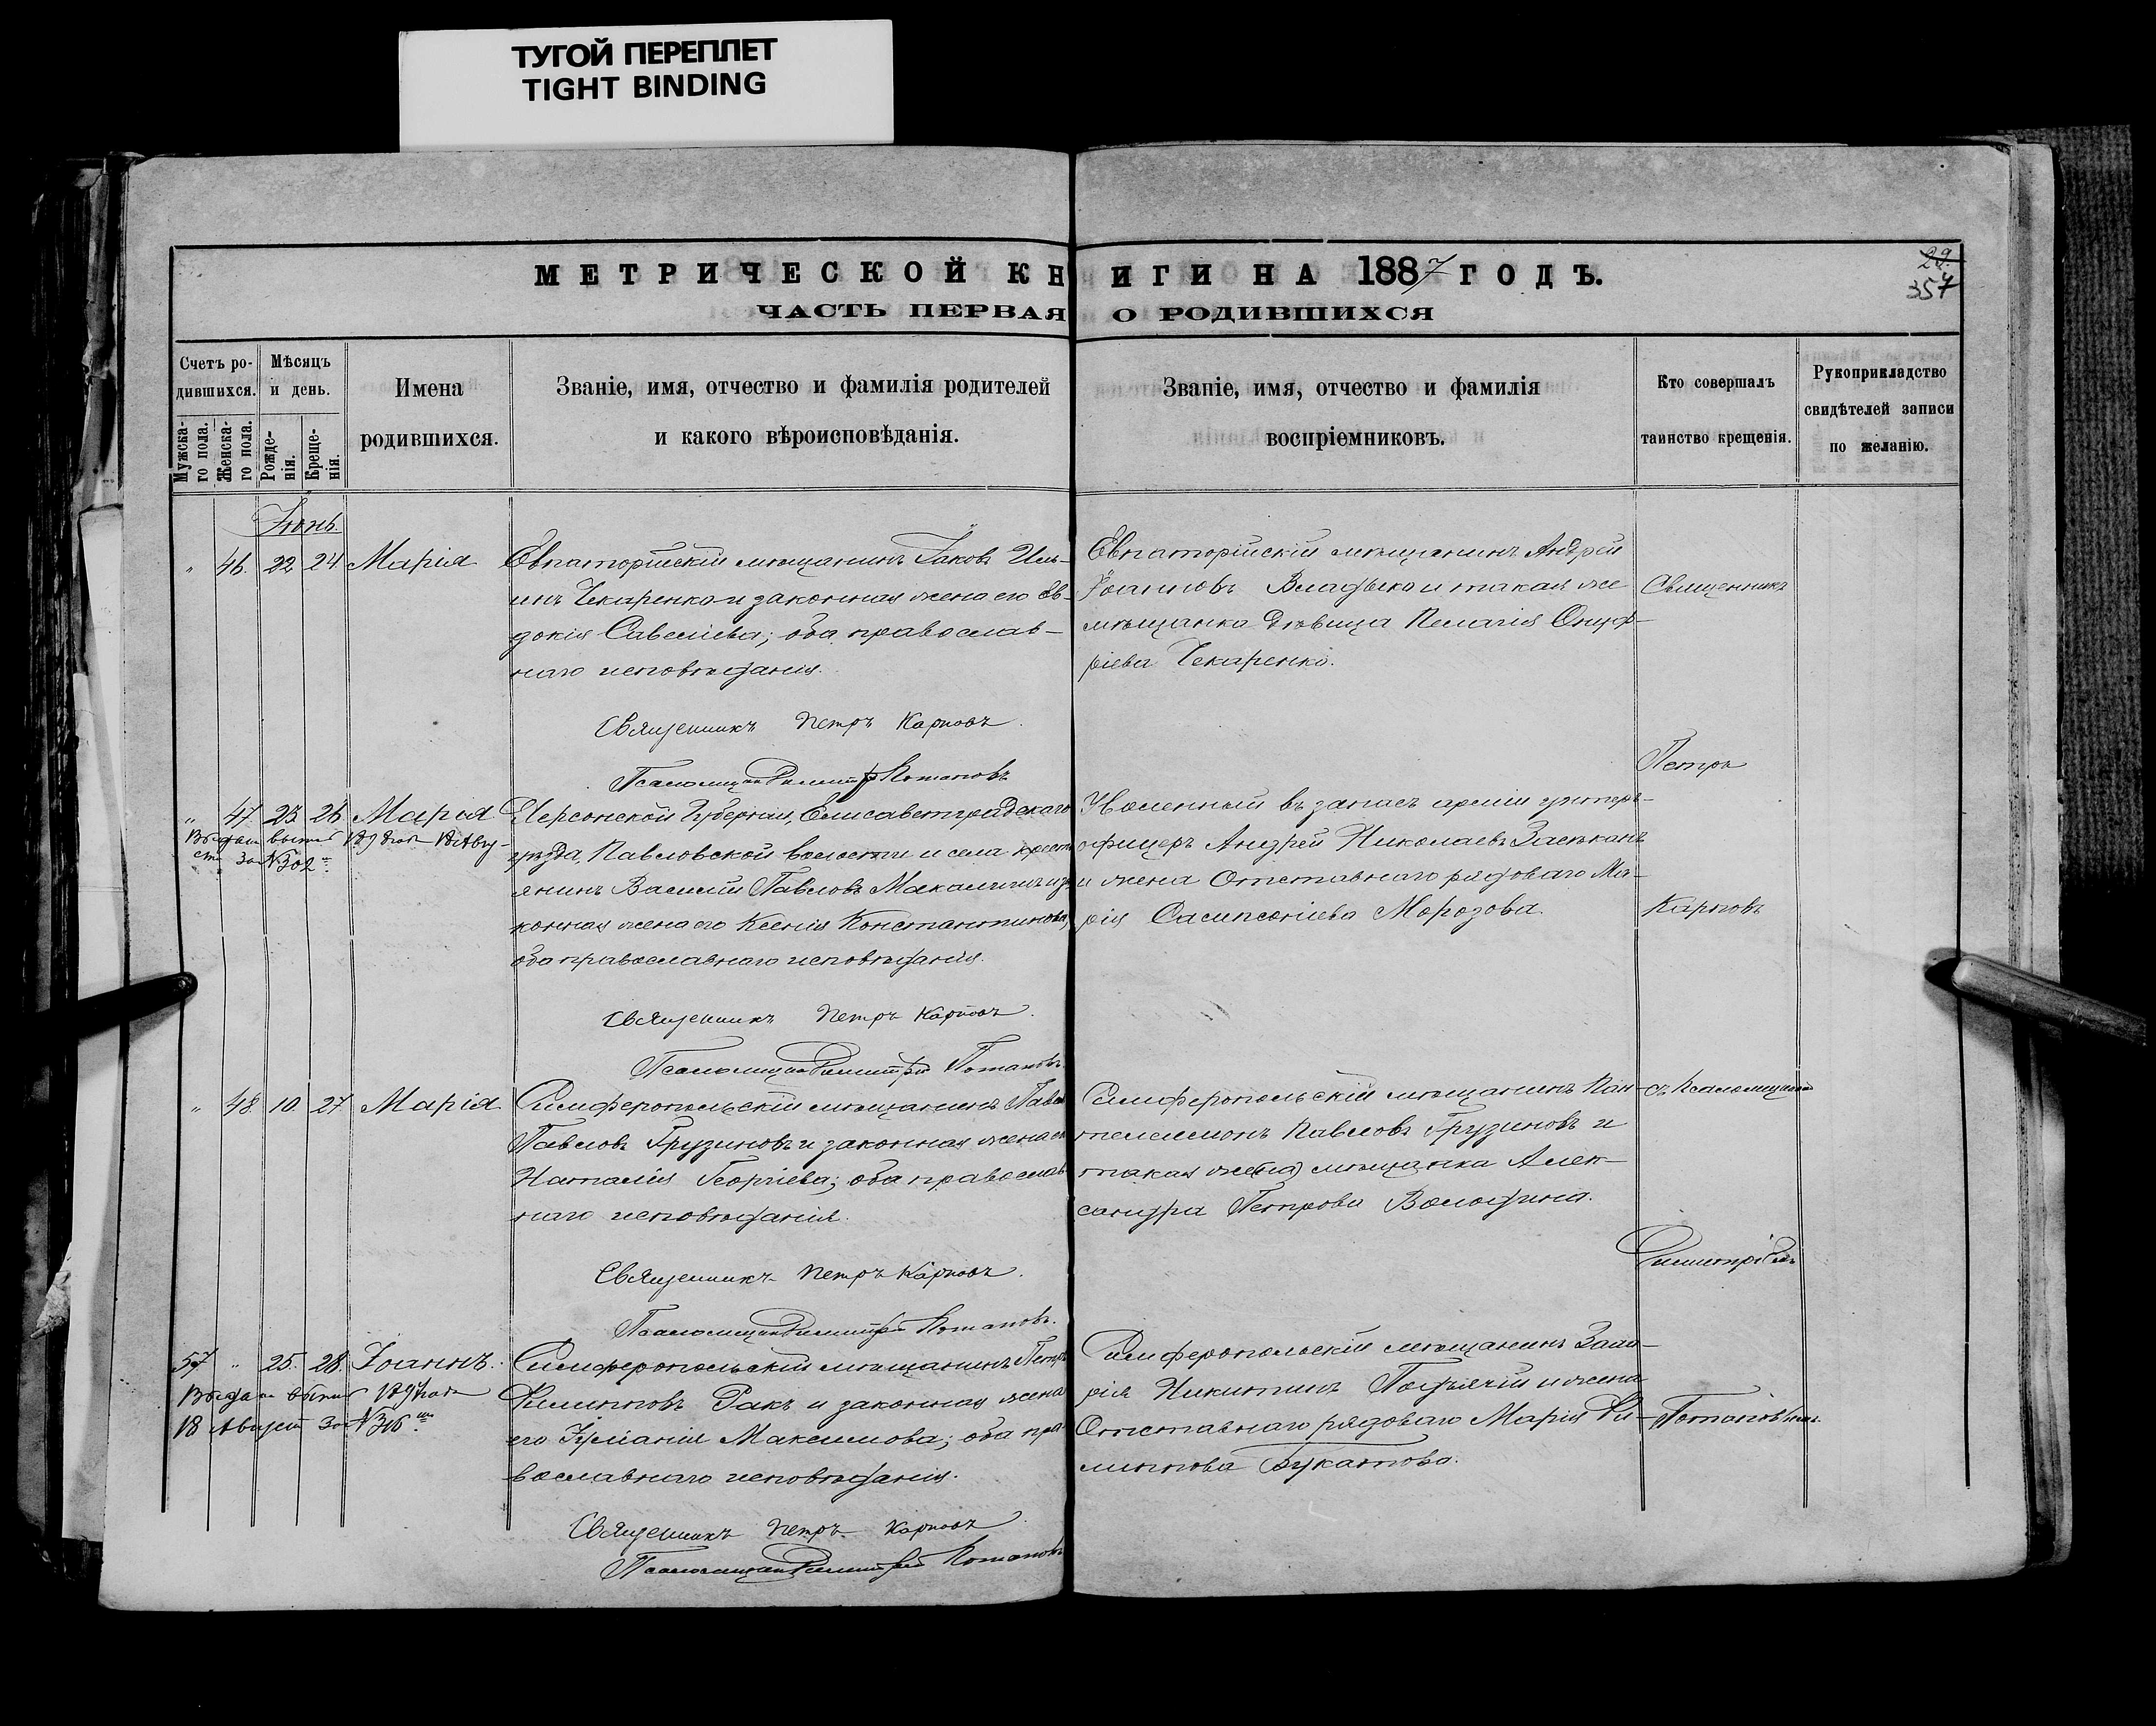 ТУГОЙ ПЕРЕПЛЕТ
TIGHT BINDING
МЕТРИЧЕСКОЙ КНИГИ НА 1887 ГОДЪ.
ЧАСТЬ ПЕРВАЯ О РОДИВШИХСЯ
29.
357
Счетъ ро-
дившихся.
Мужска-
го пола.
Женска-
го пола.
Мѣсяцъ
и день.
Рожде-
нія.
Креще-
нія.
Имена
родившихся.
Званіе, имя, отчество и фамилія родителей
и какого вѣроисповѣданія.
Званіе, имя, отчество и фамилія
воспріемниковъ.
Кто совершалъ
таинство крещенія.
Рукоприкладство
свидѣтелей записи
по желанію.
Іюнь.
" 46. 22 24 Марія
Евпаторійскій мѣщанинъ Іаковъ Иль-
инъ Чекаренко и законная жена его Ев-
докія Савеліева; оба православ-
наго исповѣданія.
Священникъ Петръ Карповъ.
Псаломщикъ Димитрій Потаповъ
Евпаторійскій мѣщанинъ Андрей
Іоанновъ Владыко и такая же
мѣщанка дѣвица Пелагія Онуф-
ріева Чекаренко.
Священникъ
Петръ
" 47. 23. 26. Марія
Выдан выпис 1891 года 18 Авгу-
ста за № 302
Херсонской Губерніи, Елисаветградскаго
уѣзда, Павловской волости и села крестья
янинъ Василій Павловъ и за
конная жена его Ксенія Константинова,
оба православнаго исповѣданія.
Священникъ Петръ Карповъ.
Псаломщикъ Димитрій Потаповъ.
Уволенный въ запасъ арміи унтеръ-
офицеръ Андрей Николаевъ
и жена Отставнаго рядоваго Ма-
рія Сампсоніева Морозова.
Карповъ
" 48 10. 27 Марія
Симферопольскій мѣщанинъ Павелъ
Павловъ Грузиновъ и законная жена его
Наталія Георгіева; оба православ-
наго исповѣданія.
Священникъ Петръ Карповъ.
Псаломщикъ Димитрій Потаповъ.
Симферопольскій мѣщанинъ Пан-
телеимонъ Павловъ Грузиновъ и
такая же(на) мѣщанка Алек-
сандра Петрова Володина.
съ Псаломщикомъ
Димитріемъ
57 " 25. 28. Іоаннъ.
Выдан выпис
18 Август за №
Симферопольскій мѣщанинъ Петръ
Филипповъ Ракъ и законная жена
его Іуліанія Максимова; оба пра-
вославнаго исповѣданія.
Священникъ Петръ Карповъ.
Псаломщикъ Димитрій Потаповъ
Симферопольскій мѣщанинъ Заха-
рія Никитинъ и жена
Отставнаго рядоваго Марія Фи-
липпова Букатова.
Потаповымъ.